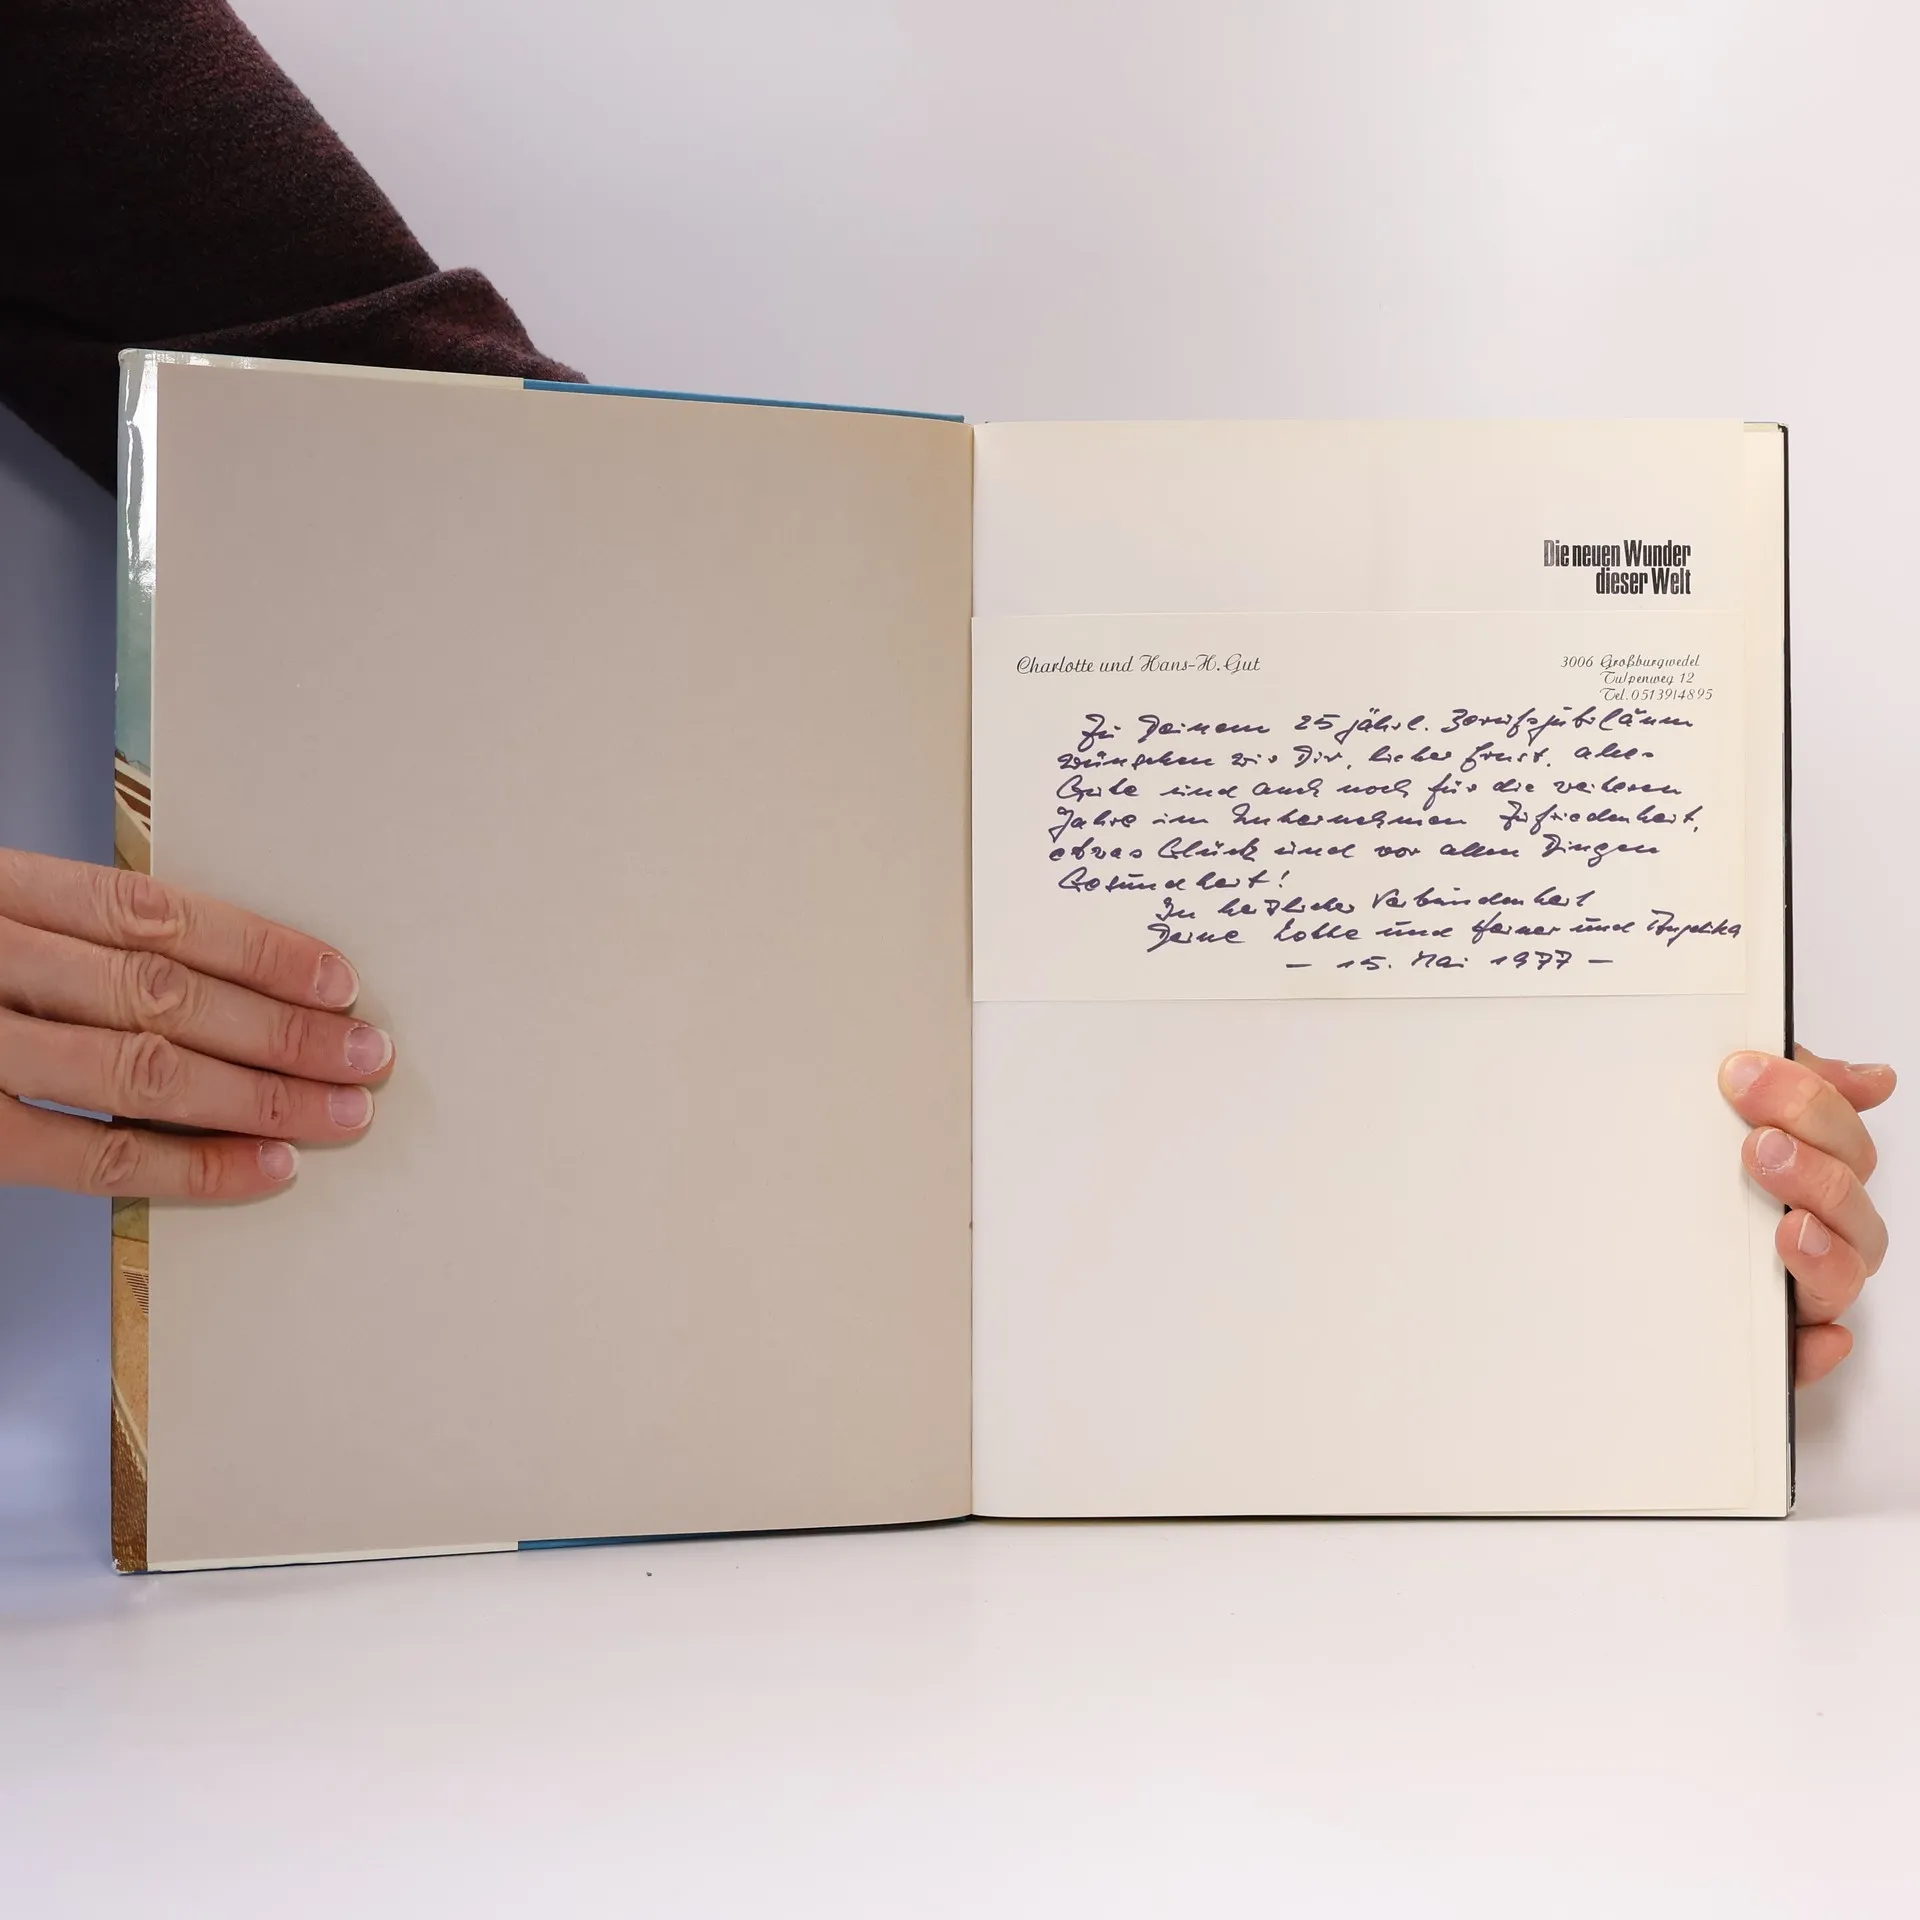 Die neuen Wunder
dieser Welt
Charlotte und Hans-H. Gut
3006 Großburgwedel
Tulpenweg 12
Tel. 05139/4895
Zu Deinem 25 jährl. Berufsjubiläum
wünschen wir Dir, lieber Ernst, alles
Gute und auch noch für die weiteren
Jahre im Unternehmen Zufriedenheit,
etwas Glück und vor allen Dingen
Gesundheit!
In herzlicher Verbundenheit
Deine Lotte und Heiner und Angelika
- 15. Mai 1977 -